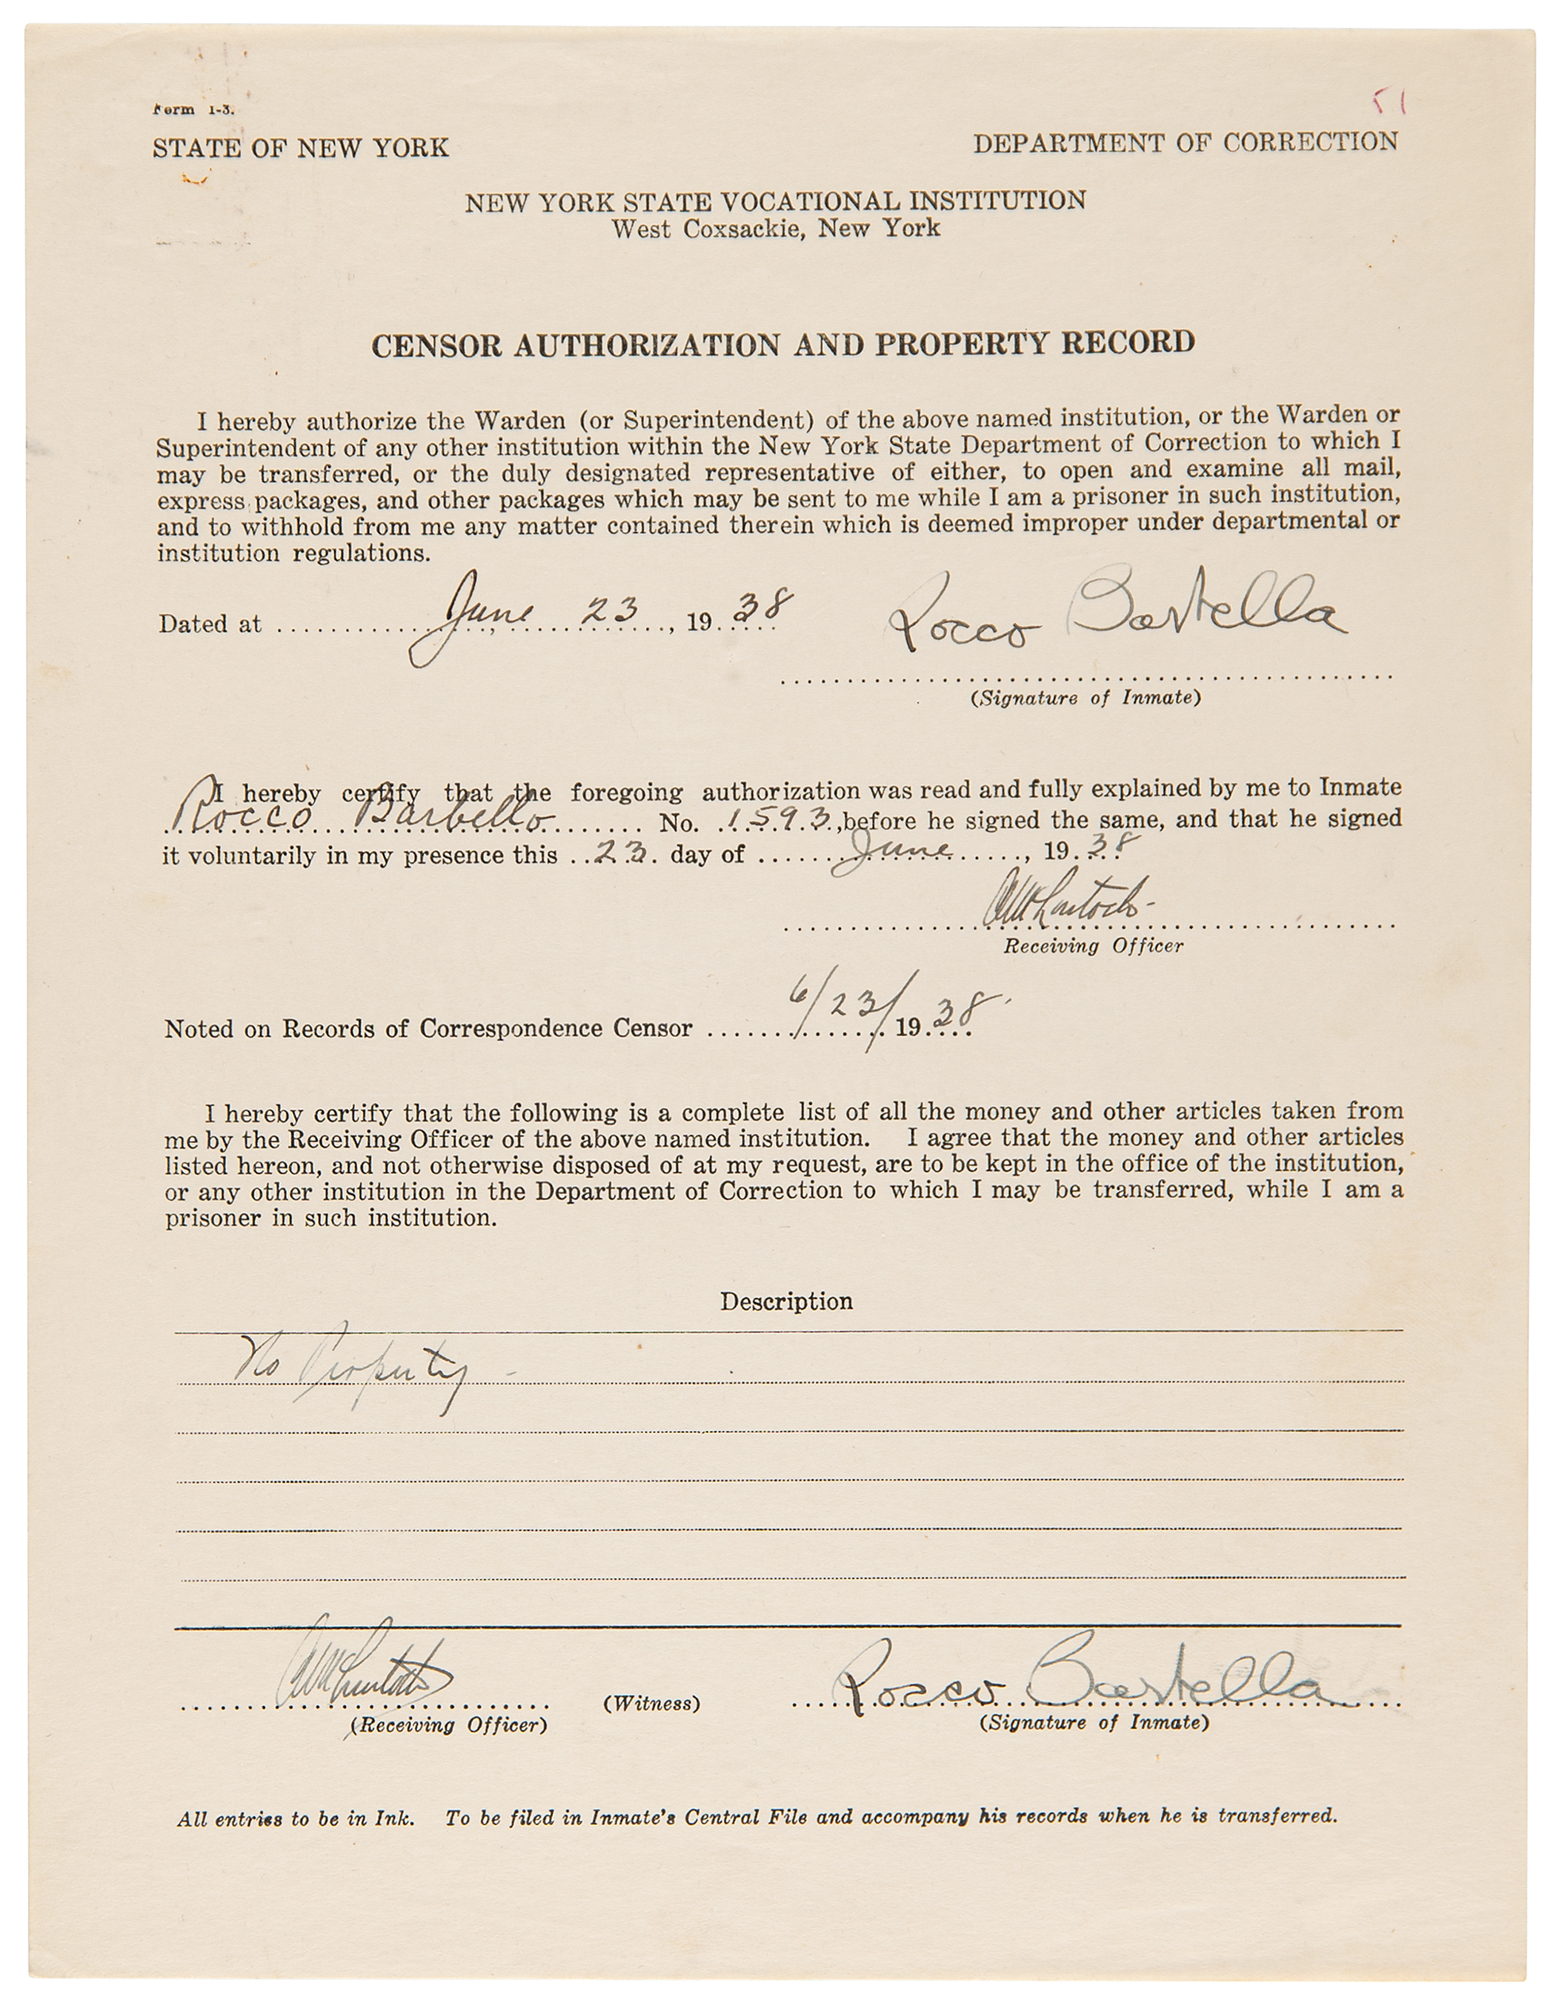 Form 1-3.
51
STATE OF NEW YORK DEPARTMENT OF CORRECTION
NEW YORK STATE VOCATIONAL INSTITUTION
West Coxsackie, New York
CENSOR AUTHORIZATION AND PROPERTY RECORD
I hereby authorize the Warden (or Superintendent) of the above named institution, or the Warden or
Superintendent of any other institution within the New York State Department of Correction to which I
may be transferred, or the duly designated representative of either, to open and examine all mail,
express packages, and other packages which may be sent to me while I am a prisoner in such institution,
and to withhold from me any matter contained therein which is deemed improper under departmental or
institution regulations.
Dated at June 23, 1938 Rocco Bartella
(Signature of Inmate)
I hereby certify that the foregoing authorization was read and fully explained by me to Inmate
Rocco Barbello No. 1593, before he signed the same, and that he signed
it voluntarily in my presence this 23 day of June, 1938
Receiving Officer
Noted on Records of Correspondence Censor 6/23/1938
I hereby certify that the following is a complete list of all the money and other articles taken from
me by the Receiving Officer of the above named institution. I agree that the money and other articles
listed hereon, and not otherwise disposed of at my request, are to be kept in the office of the institution,
or any other institution in the Department of Correction to which I may be transferred, while I am a
prisoner in such institution.
Description
No Property -
(Witness) Rocco Bartella
(Receiving Officer) (Signature of Inmate)
All entries to be in Ink. To be filed in Inmate's Central File and accompany his records when he is transferred.